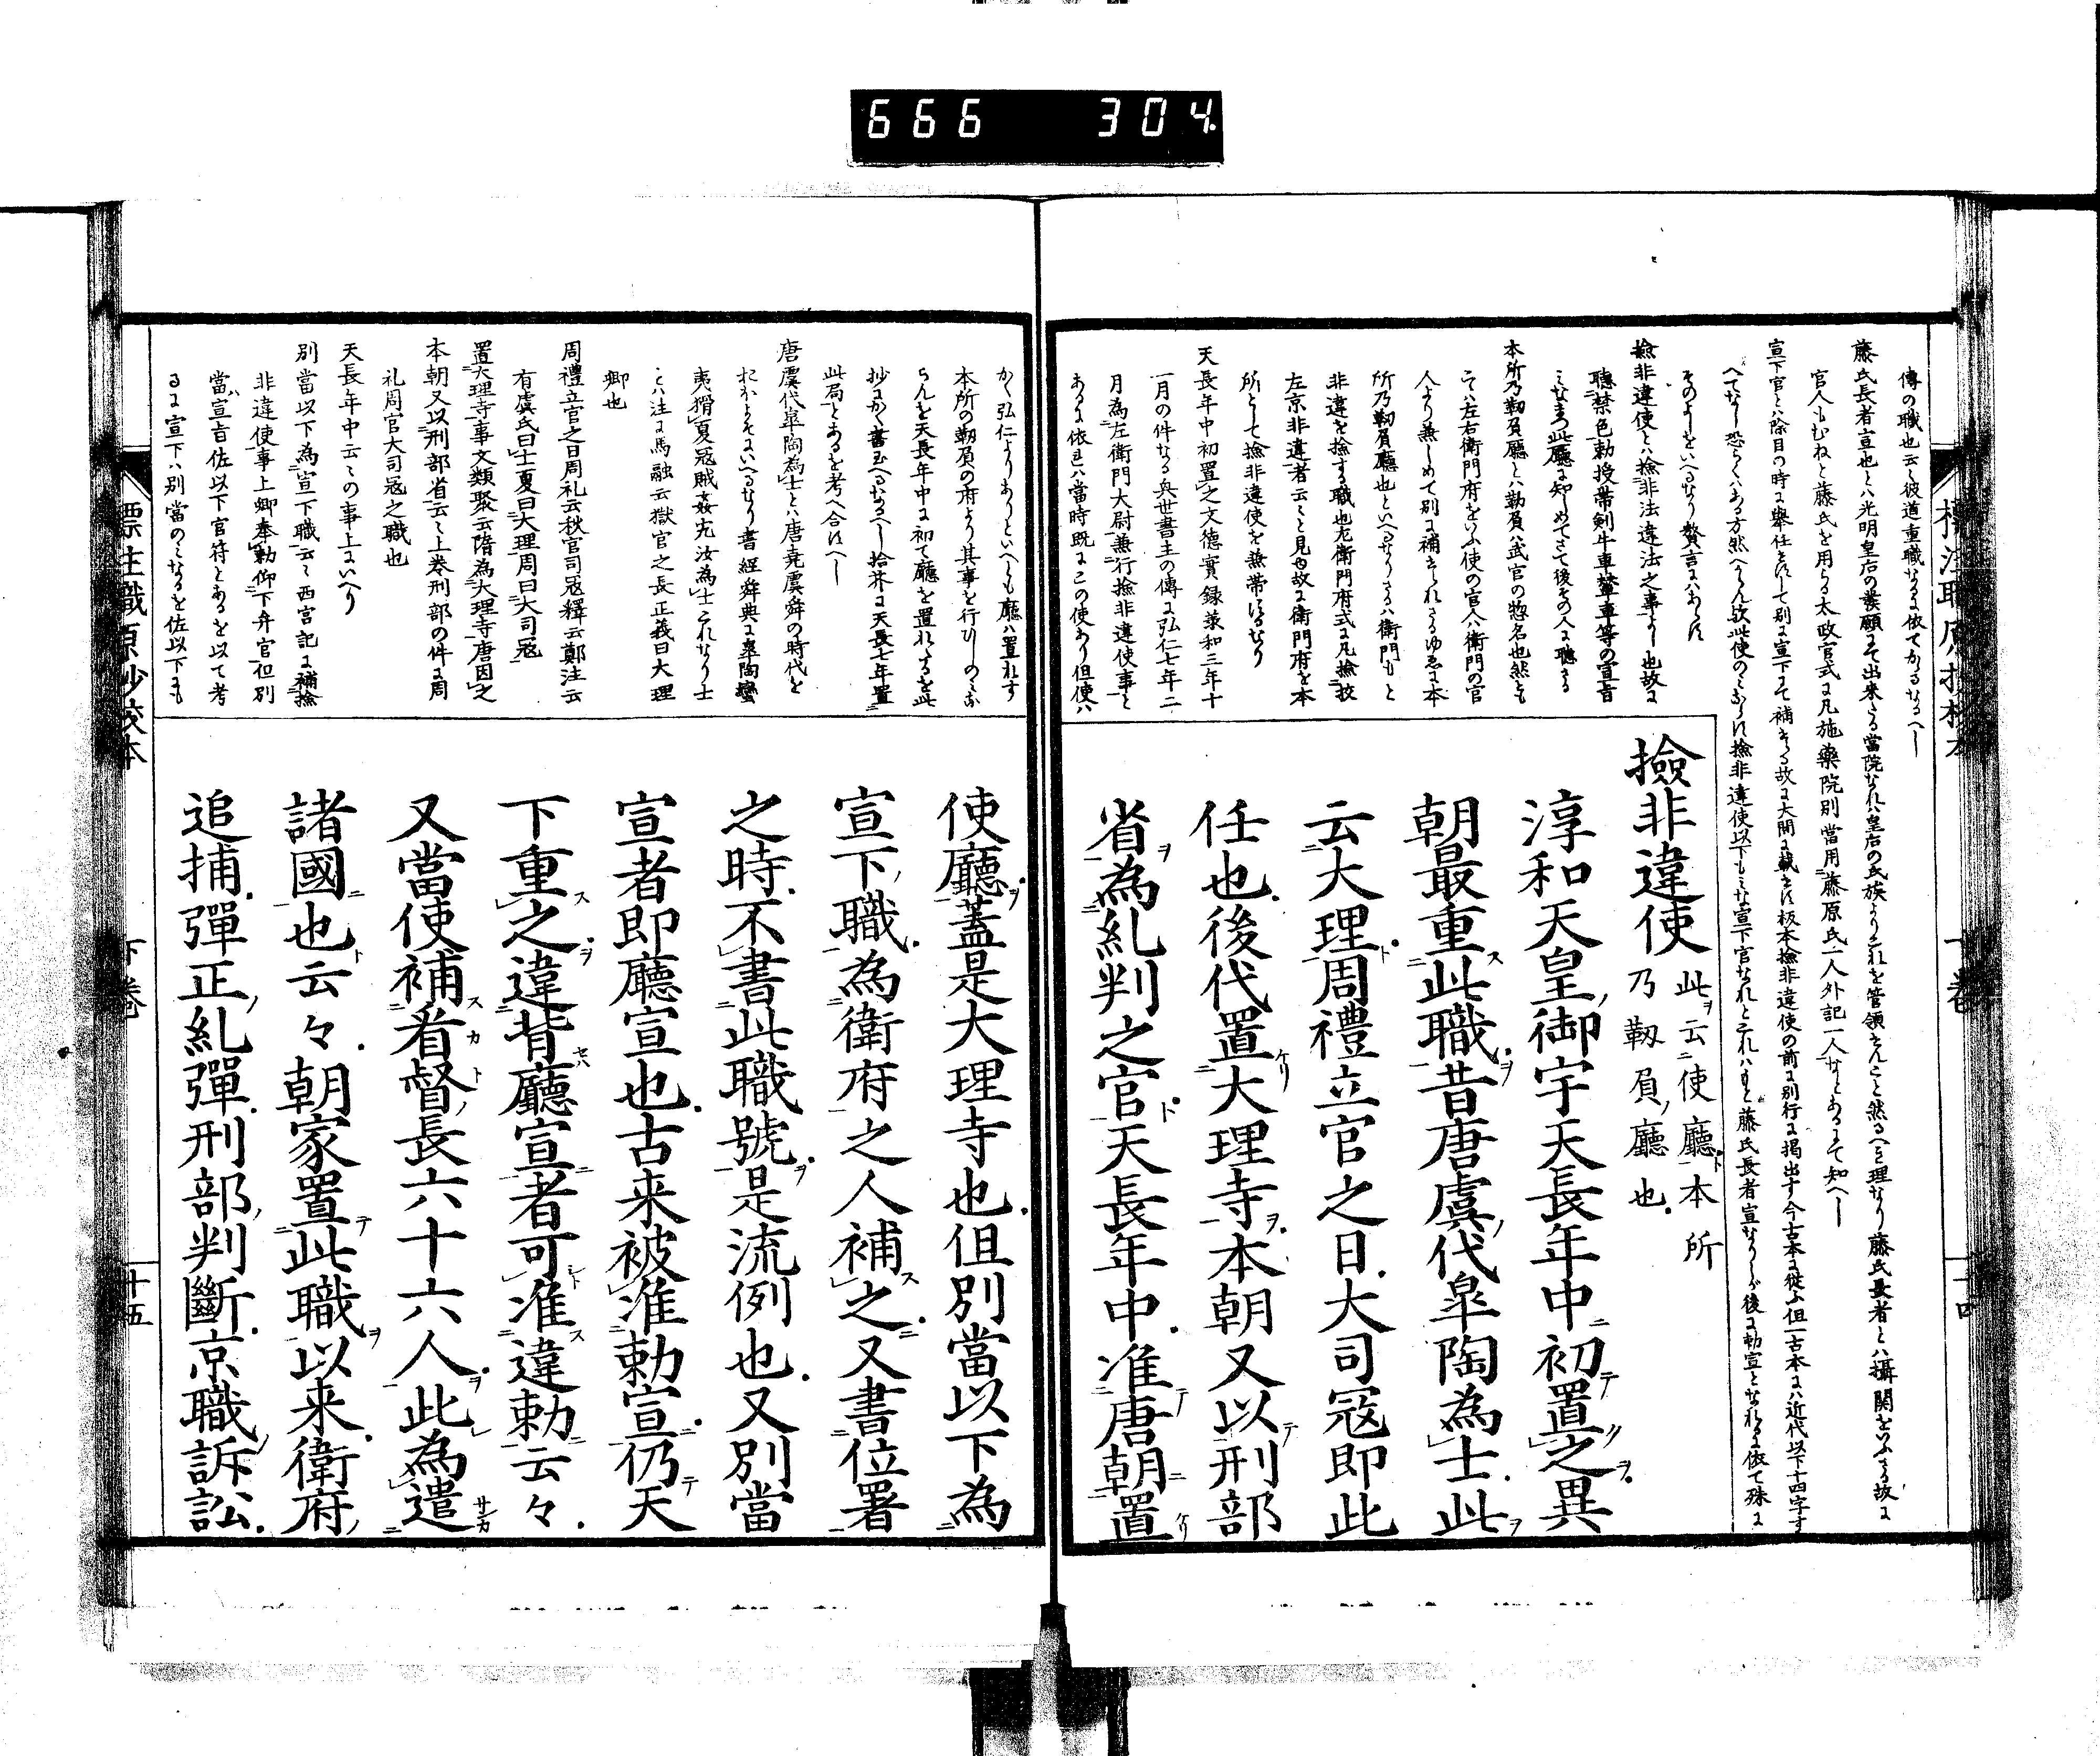 666 304
傳の職也云々彼道重職なるに依てかるなるへし
藤氏長者宣也とハ光明皇后の發願にて出来たる當院なれハ皇后の氏族よりこれを管領せんこと然るへき理なり藤氏長者とハ攝關をいふさる故に
官人もむねと藤氏を用らる太政官式に凡施藥院別當用藤原氏一人外記一人なとあるにて知へし
宣下官とハ除目の時に擧任せすして別に宣下にて補する故に大間に載せす板本撿非違使の前に別行に揭出す今古本に従ふ但一古本にハ近代以下十四字す
へてなし恐らくハある方然へからん故此使のみならす撿非違使以下もみな宣下官なれとこれハもと藤氏長者宣なりしか後に勅宣となれるに依て殊に
そのよしをいへるなり贅言にハあらす
撿非違使とハ撿非法違法之事よし也故に
聽禁色勅授帶剣牛車輦車等の宣旨
みなまつ此廳に知しめてさて後その人に聽さる
本所乃靱負廳とハ靱負ハ武官の惣名也然とも
こゝハ左右衛門府をいふ使の官人ハ衛門の官
人より兼しめて別に補せられさるゆゑに本
所乃靱負廳也といへるなりさるハ衛門もと
非違を撿する職也左衛門府式に凡撿挍
左京非違者云々と見ゆ故に衛門府を本
所として撿非違使を兼帶するなり
天長年中初置之文德實録兼和三年十
一月の件なる興世書主の傳に弘仁七年二
月為左衛門大尉兼行撿非違使事と
あるに依ハ當時既にこの使あり但使ハ
撿非違使
此云使廳本所
乃靱負廳也
淳和天皇御宇天長年中初置之異
朝最重此職昔唐虞代皐陶為士此
云大理周禮立官之日大司冦即此
任也後代置大理寺本朝又以刑部
省為糺判之官天長年中准唐朝置
かく弘仁よりありといへとも廳ハ置れす
本所の靱負の府より其事を行ひしのみな
らんを天長年中に初て廳を置れたるを此
抄にかく書玉へるなるへし拾芥に天長七年置
此局とあるを考へ合すへし
唐虞代皐陶為士とハ唐堯虞舜の時代を
おほよそにいへるなり書經舜典に皐陶蠻
夷猾夏冦賊姦宄汝為士これなり士
とハ注に馬融云獄官之長正義曰大理
卿也
周禮立官之日周礼云秋官司冦釋云鄭注云
有虞氏曰士夏曰大理周曰大司冦
置大理寺事文類聚云隋為大理寺唐因之
本朝又以刑部省云々上巻刑部の件に周
礼周官大司冦之職也
天長年中云々の事上にいへり
別當以下為宣下職云々西宮記に補撿
非違使事上卿奉勅仰下弁官但別
當宣旨佐以下官符とあるを以て考
るに宣下ハ別當のみなるを佐以下にも
使廳蓋是大理寺也但別當以下為
宣下職為衛府之人補之又書位署
之時不書此職號是流例也又別當
宣者即廳宣也古来被准勅宣仍天
下重之違背廳宣者可准違勅云々
又當使補看督長六十六人此為遣
諸國也云々朝家置此職以来衛府
追捕彈正糺彈刑部判斷京職訴訟
標注職原抄校本
下巻
十五